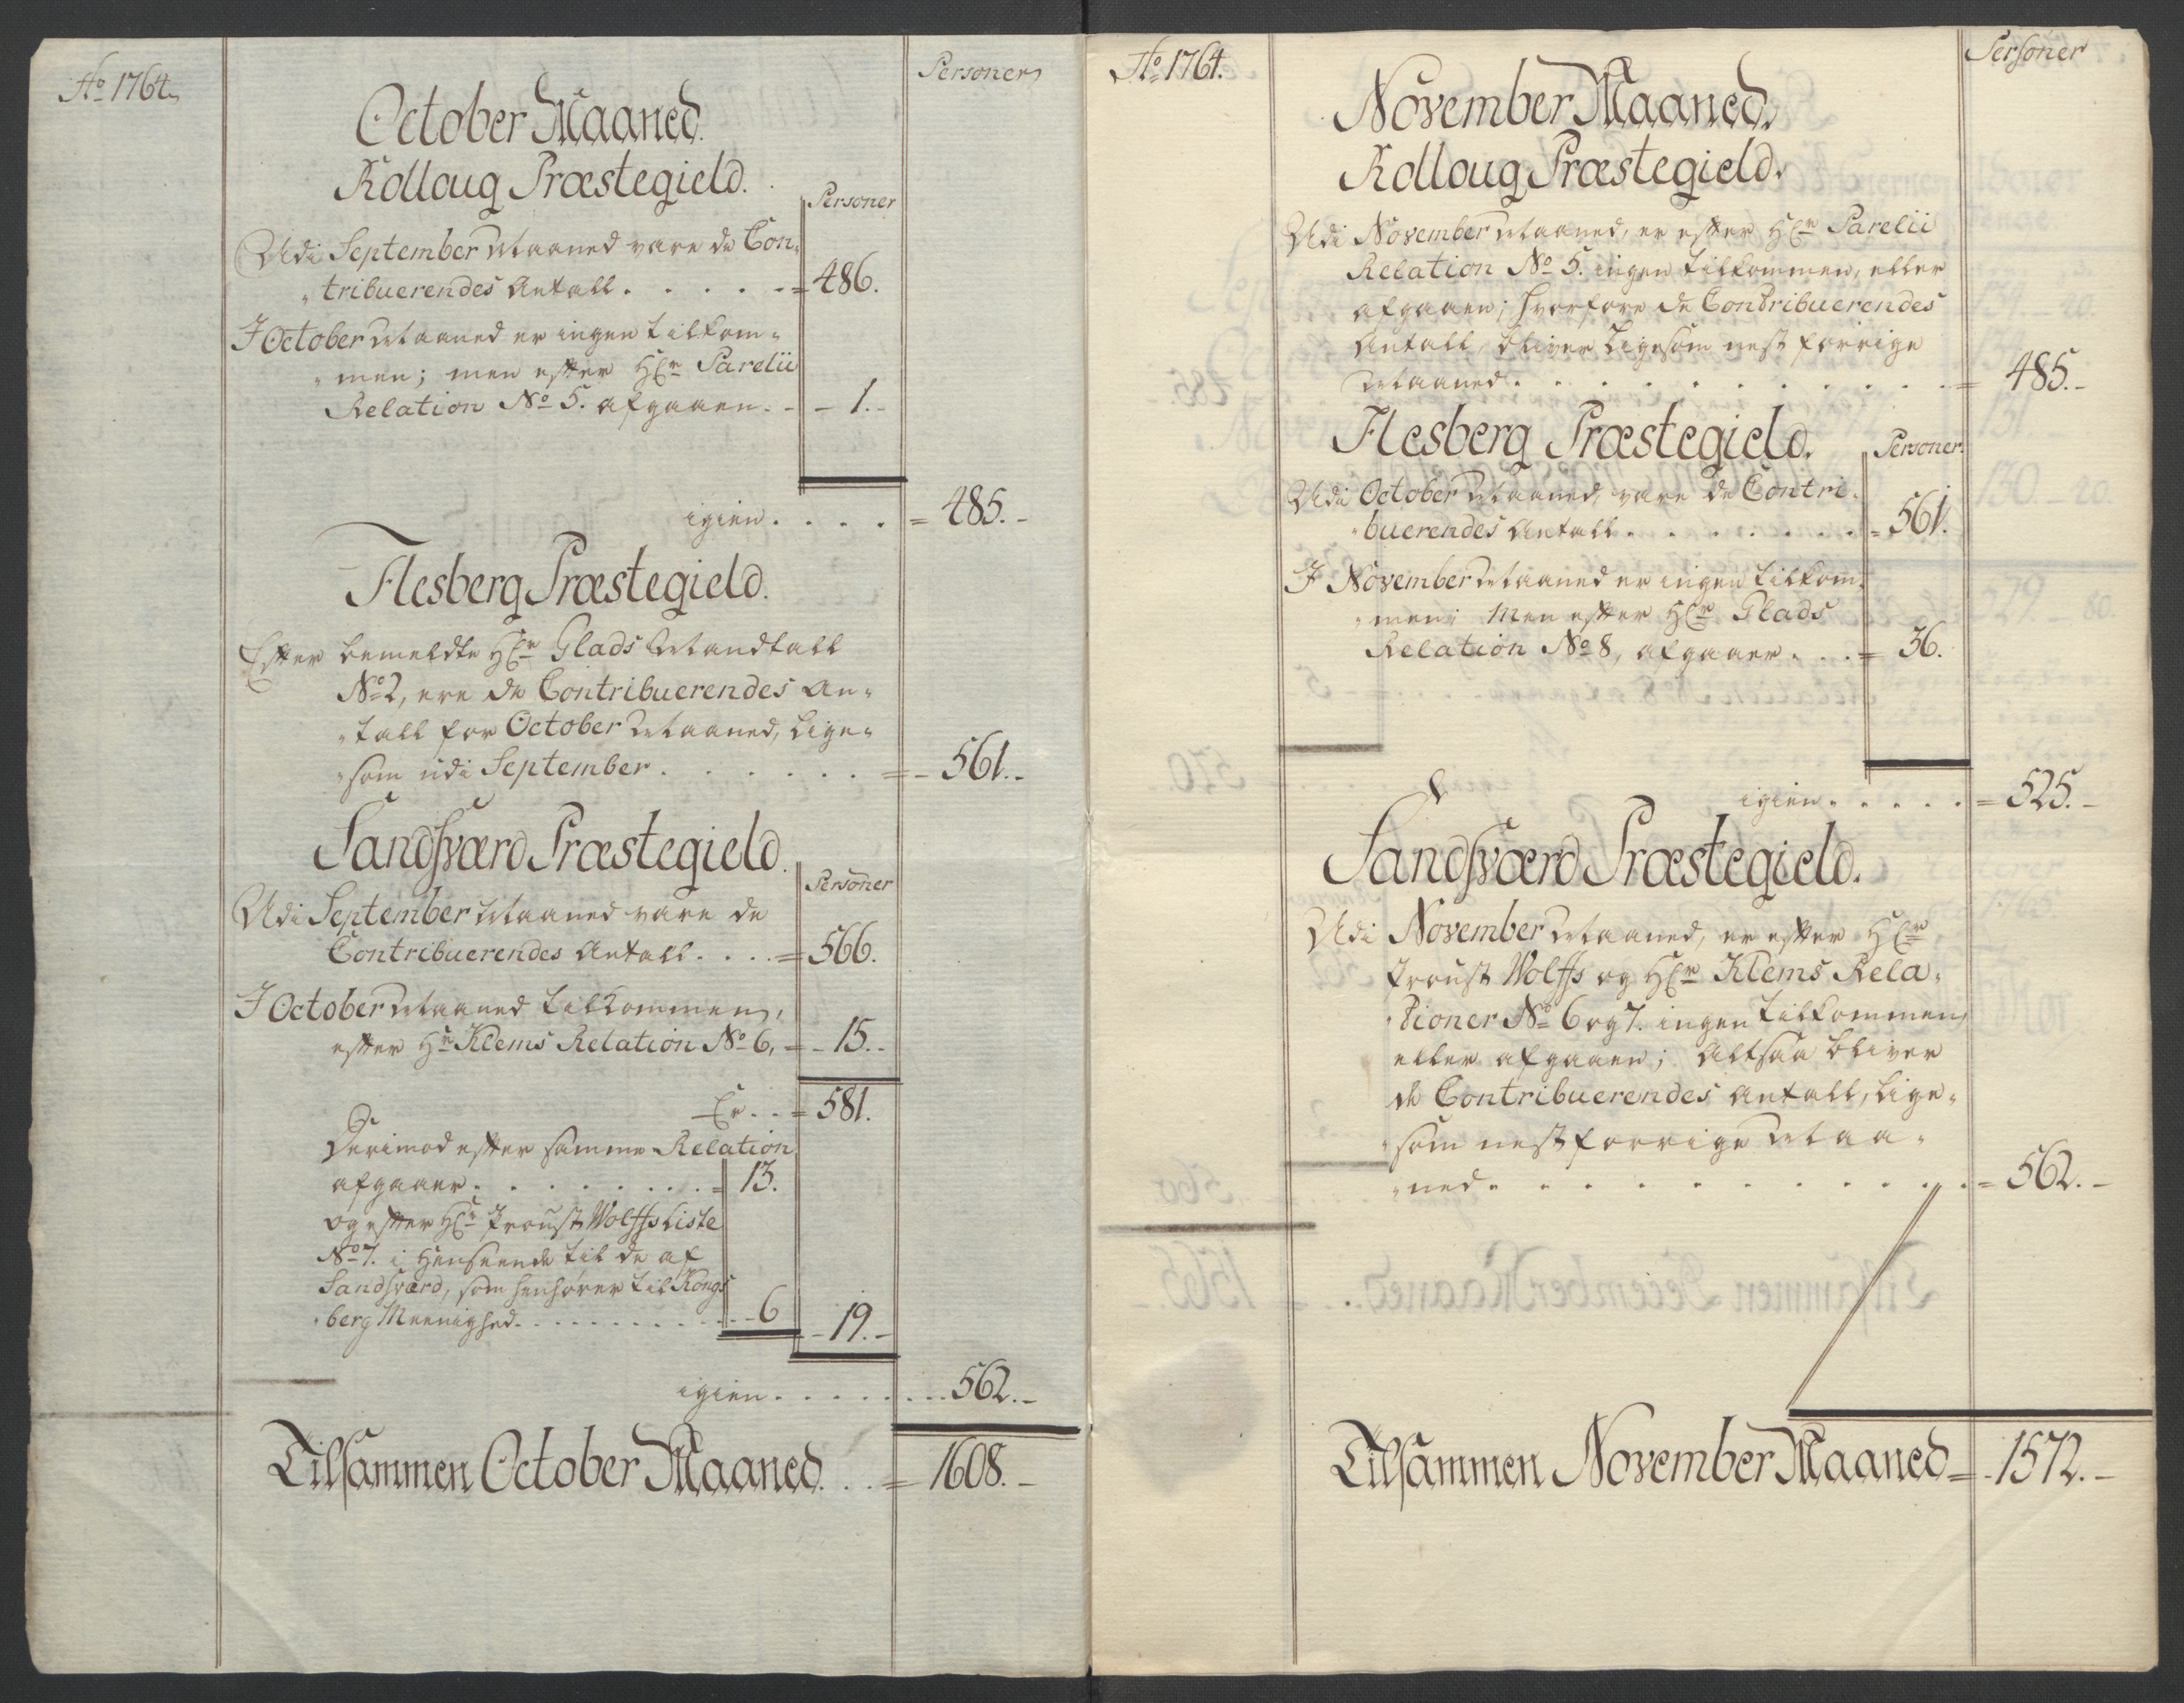 Ao 1764.
Personer
October Maaned.
Rolloug Præstegield.
Personer
Udi September Maaned vare de Con-
"tribuerendes Antall. . . . . = 486.
I October Maaned er ingen tilkom-
"men; men efter Hr Parelii
Relation No 5. afgaaen. - - 1. -
igien. . . . = 485. -
Flesberg Præstegield.
Efter bemeldte Hr Glads Mandtall
No 2, ere de Contribuerendes An-
"tall for October Maaned, lige-
"som udi September. . . . . . = - 561. -
Sandsværd Præstegield.
Personer
Udi September Maaned vare de
Contribuerendes Antall. . . . = 566.
I October Maaned tilkommen,
efter Hr Klems Relation No 6, = - 15. -
Er. . = 581.
Derimod efter samme Relation
afgaaer. . . . . . . . = 13.
og efter Hr Proust Wolffs Liste
No 7. i Henseende til de af
Sandsværd, som henhører til Kongs-
"berg Meenighed. . . . . . . . - - 6 - 19. -
igien. . . . . . . . 562. -
Tilsammen October Maaned. . . = 1608. -
Ao 1764.
Personer
November Maaned.
Rolloug Præstegield.
Udi November Maaned, er efter Hr Parelii
Relation No 5. ingen tilkommen, eller
afgaaen; hvorfore de Contribuerendes
Antall, bliver ligesom nest forrige
Maaned. . . . . . . . . . . = 485. -
Flesberg Præstegield.
Personer.
Udi October Maaned, vare de Contri-
"buerendes Antall. . . . . . . = 561.
I November Maaned er ingen tilkom-
"men; Men efter Hr Glads
Relation No 8, afgaaer. . . = 36.
igien. . . . . = 525. -
Sandsværd Præstegield.
Udi November Maaned, er efter Hr
Proust Wolffs og Hr Klems Rela-
"tioner No 6 og 7. ingen tilkommen,
eller afgaaen; Altsaa bliver
de Contribuerendes Antall, lige-
"som nest forrige Maa-
"ned. . . . . . . . . . . = 562. -
Tilsammen November Maaned = - 1572. -